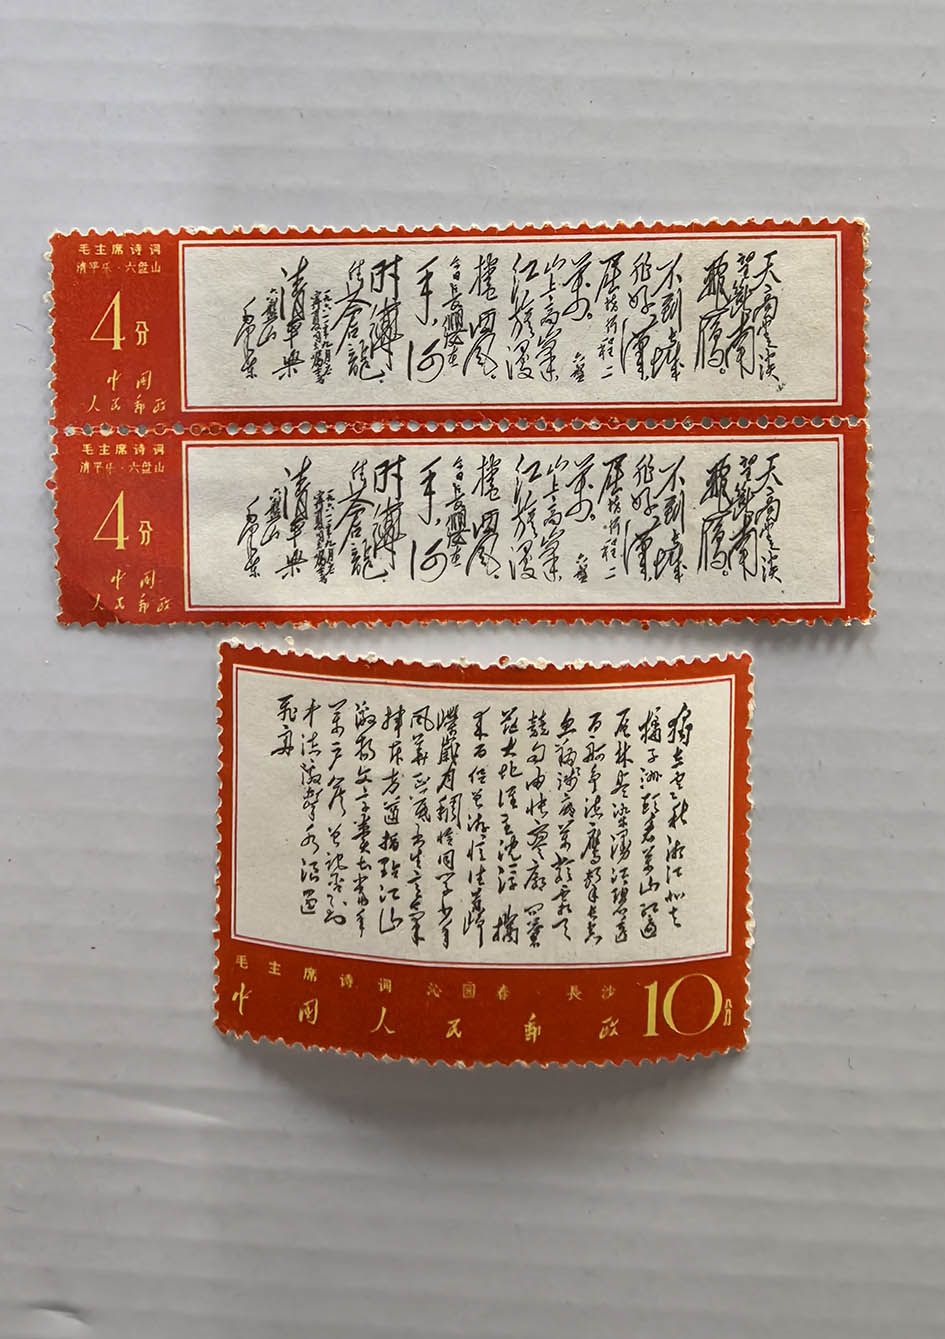 毛主席诗词
清平乐·六盘山
4分
中国
人民邮政
天高云淡
望断南
飛鴈。
不到长城
非好漢
屈指行程二
万。六盤
山上高峯
红旗漫
捲西风。
今日长缨在
手，何
时縛
住苍龍
清平乐
六盤山
毛泽东
毛主席诗词
清平乐·六盘山
4分
中国
人民邮政
天高云淡
望断南
飛鴈。
不到长城
非好漢
屈指行程二
万。六盤
山上高峯
红旗漫
捲西风。
今日长缨在
手，何
时縛
住苍龍
清平乐
六盤山
毛泽东
独立寒秋湘江北去
橘子洲头看万山红遍
层林尽染漫江碧透
百舸争流鹰击长空
鱼翔浅底万类霜天
竞自由怅寥廓问苍
茫大地谁主沉浮 携
来百侣曾游忆往昔峥
嵘岁月稠恰同学少年
风华正茂书生意气
挥斥方遒指点江山
激扬文字粪土当年
万户侯曾记否到
中流击水浪遏
飞舟
毛主席诗词 沁园春·長沙
中国人民邮政 10分